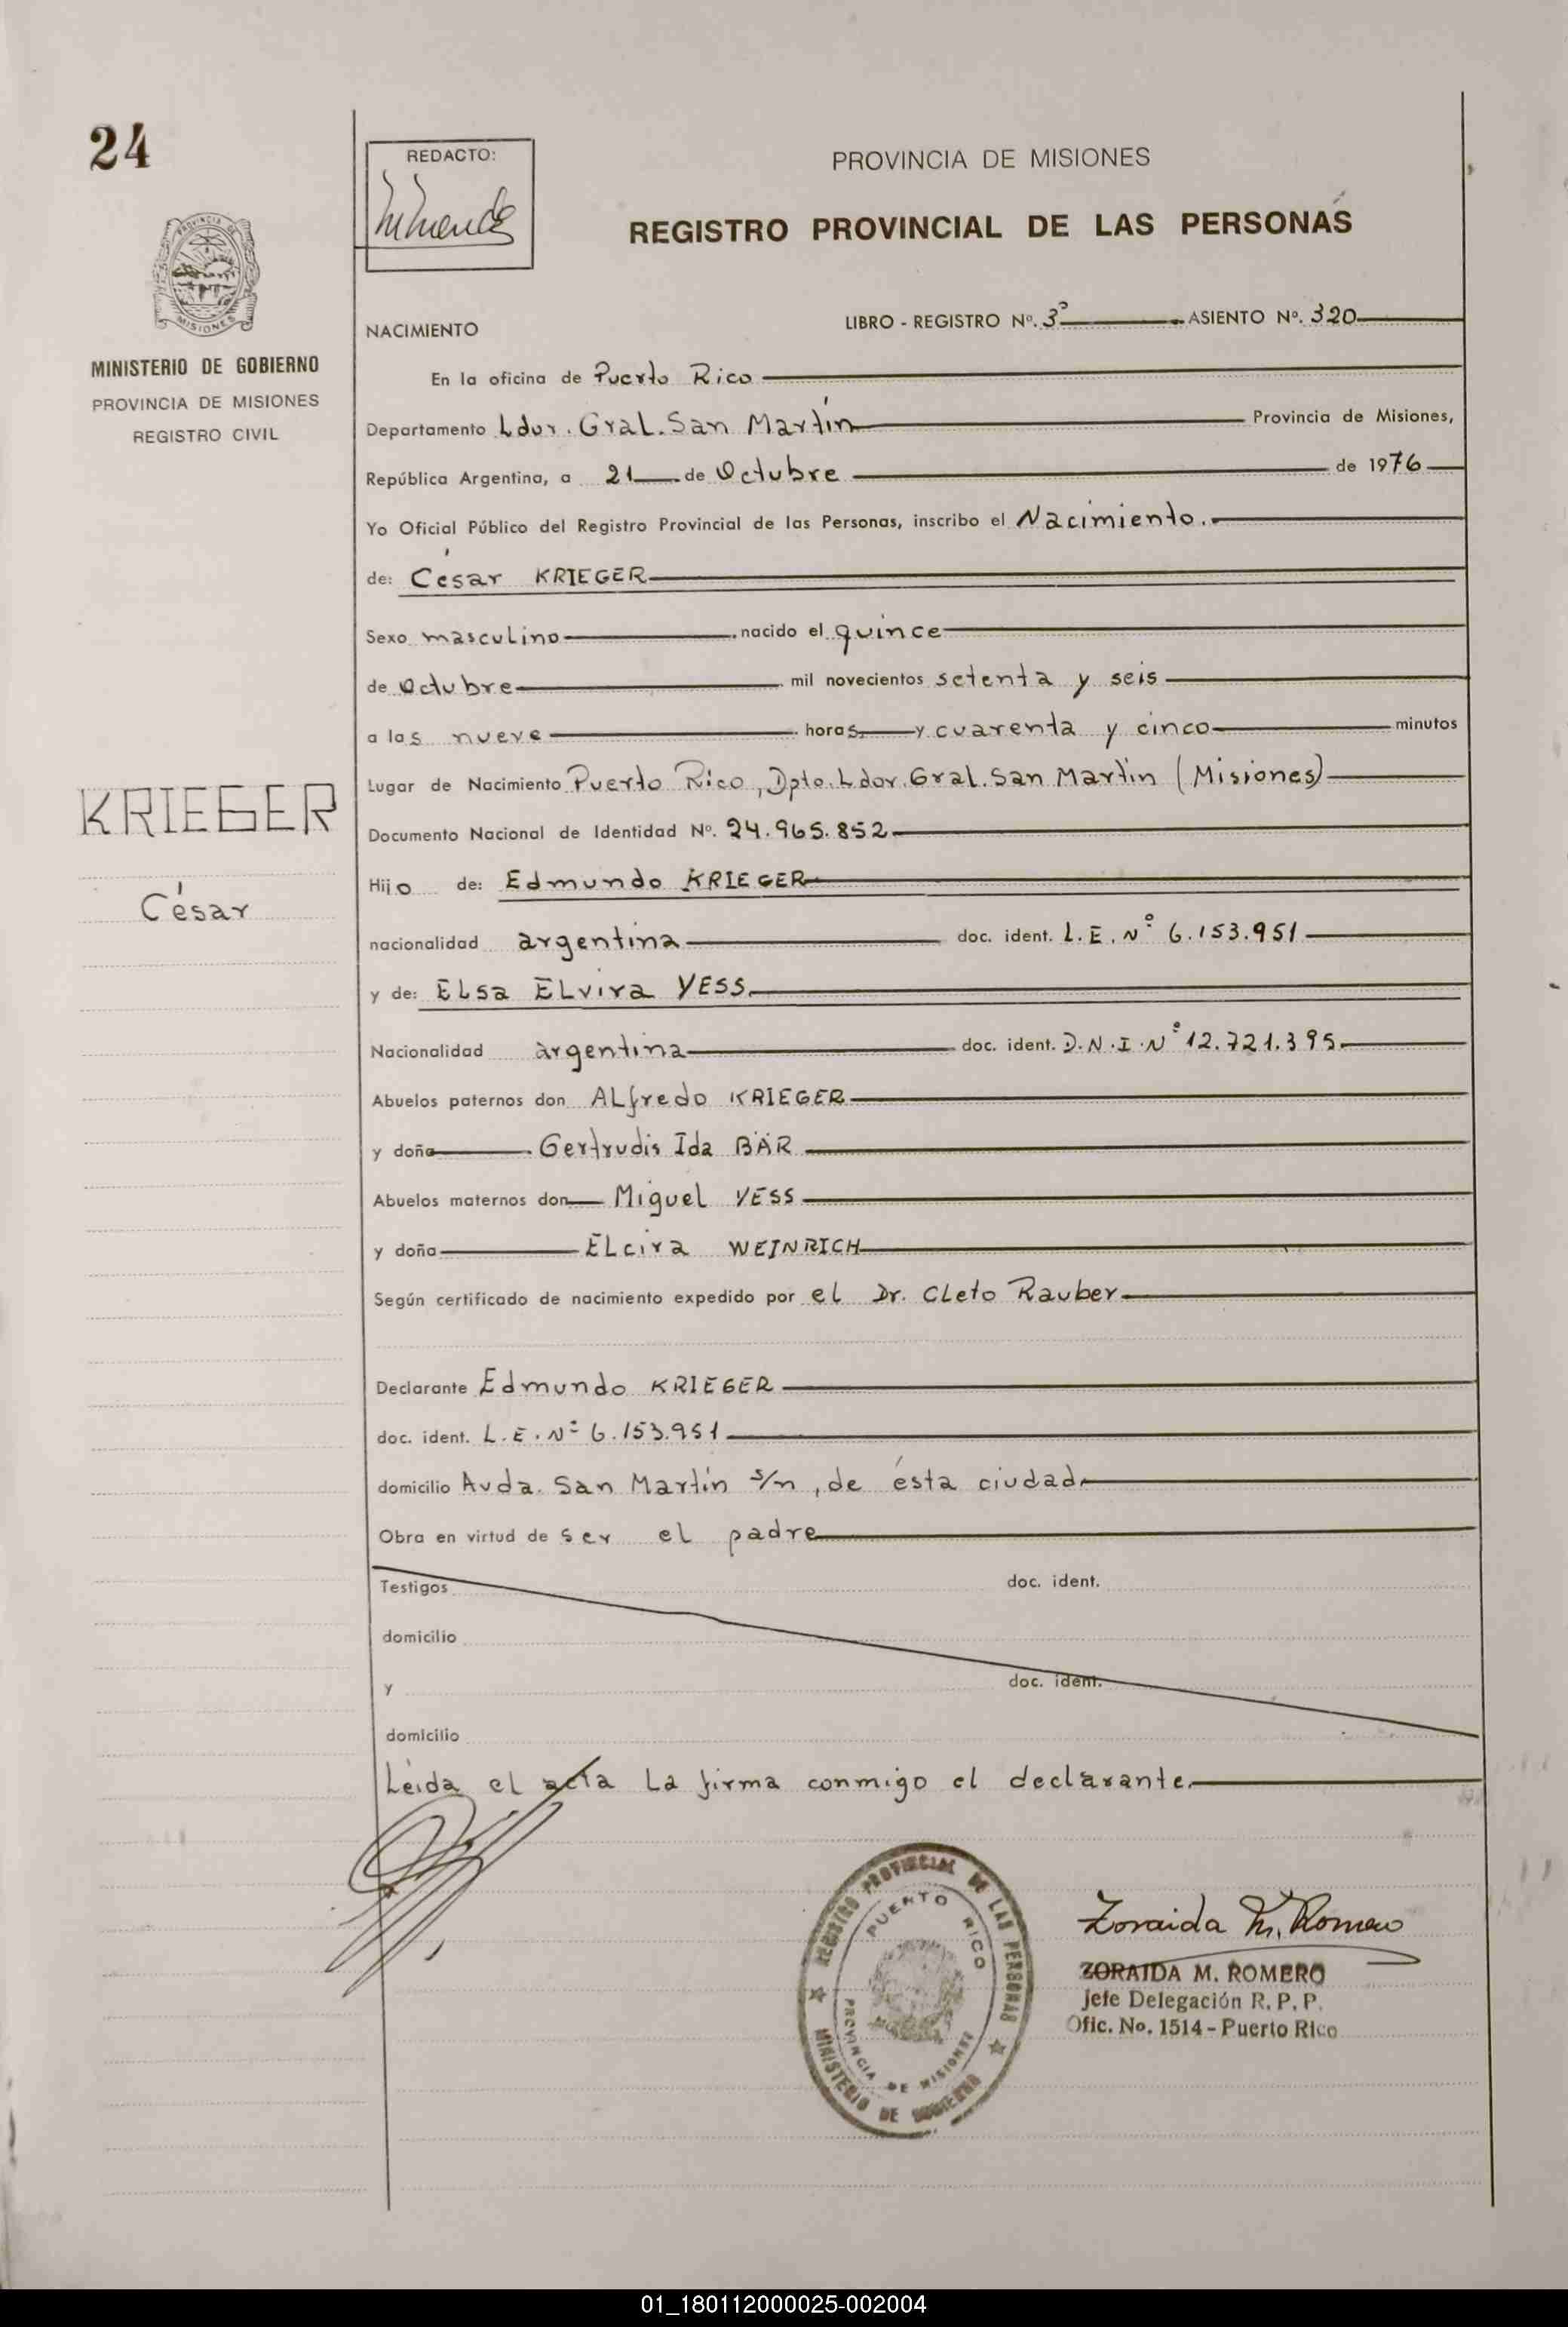 24
REDACTO:
PROVINCIA DE MISIONES
REGISTRO PROVINCIAL DE LAS PERSONAS
PROVINCIA DE
MISIONES
MINISTERIO DE GOBIERNO
PROVINCIA DE MISIONES
REGISTRO CIVIL
NACIMIENTO
LIBRO - REGISTRO Nº. 3º ASIENTO Nº. 320
En la oficina de Puerto Rico
Departamento Ldor. Gral. San Martín Provincia de Misiones,
República Argentina, a 21 de Octubre de 1976
Yo Oficial Público del Registro Provincial de las Personas, inscribo el Nacimiento.
de: César KRIEGER
Sexo masculino nacido el quince
de Octubre mil novecientos setenta y seis
a las nueve horas y cuarenta y cinco minutos
Lugar de Nacimiento Puerto Rico, Dpto. Ldor. Gral. San Martín (Misiones)
KRIEGER
César
Documento Nacional de Identidad Nº. 24.965.852
Hijo de: Edmundo KRIEGER
nacionalidad argentina doc. ident. L.E. Nº 6.153.951
y de: Elsa Elvira VESS
Nacionalidad argentina doc. ident. D.N.I. Nº 12.721.395
Abuelos paternos don Alfredo KRIEGER
y doña Gertrudis Ida BÄR
Abuelos maternos don Miguel VESS
y doña Elcira WEINRICH
Según certificado de nacimiento expedido por el Dr. Cleto Rauber
Declarante Edmundo KRIEGER
doc. ident. L.E. Nº 6.153.951
domicilio Avda. San Martín s/n, de ésta ciudad
Obra en virtud de ser el padre
Testigos doc. ident.
domicilio
y doc. ident.
domicilio
Leída el acta la firma conmigo el declarante.
REGISTRO PROVINCIAL DE LAS PERSONAS
PUERTO RICO
PROVINCIA DE MISIONES
MINISTERIO DE GOBIERNO
Zoraida M. Romero
ZORAIDA M. ROMERO
Jefe Delegación R. P. P.
Ofic. No. 1514 - Puerto Rico
01_180112000025-002004